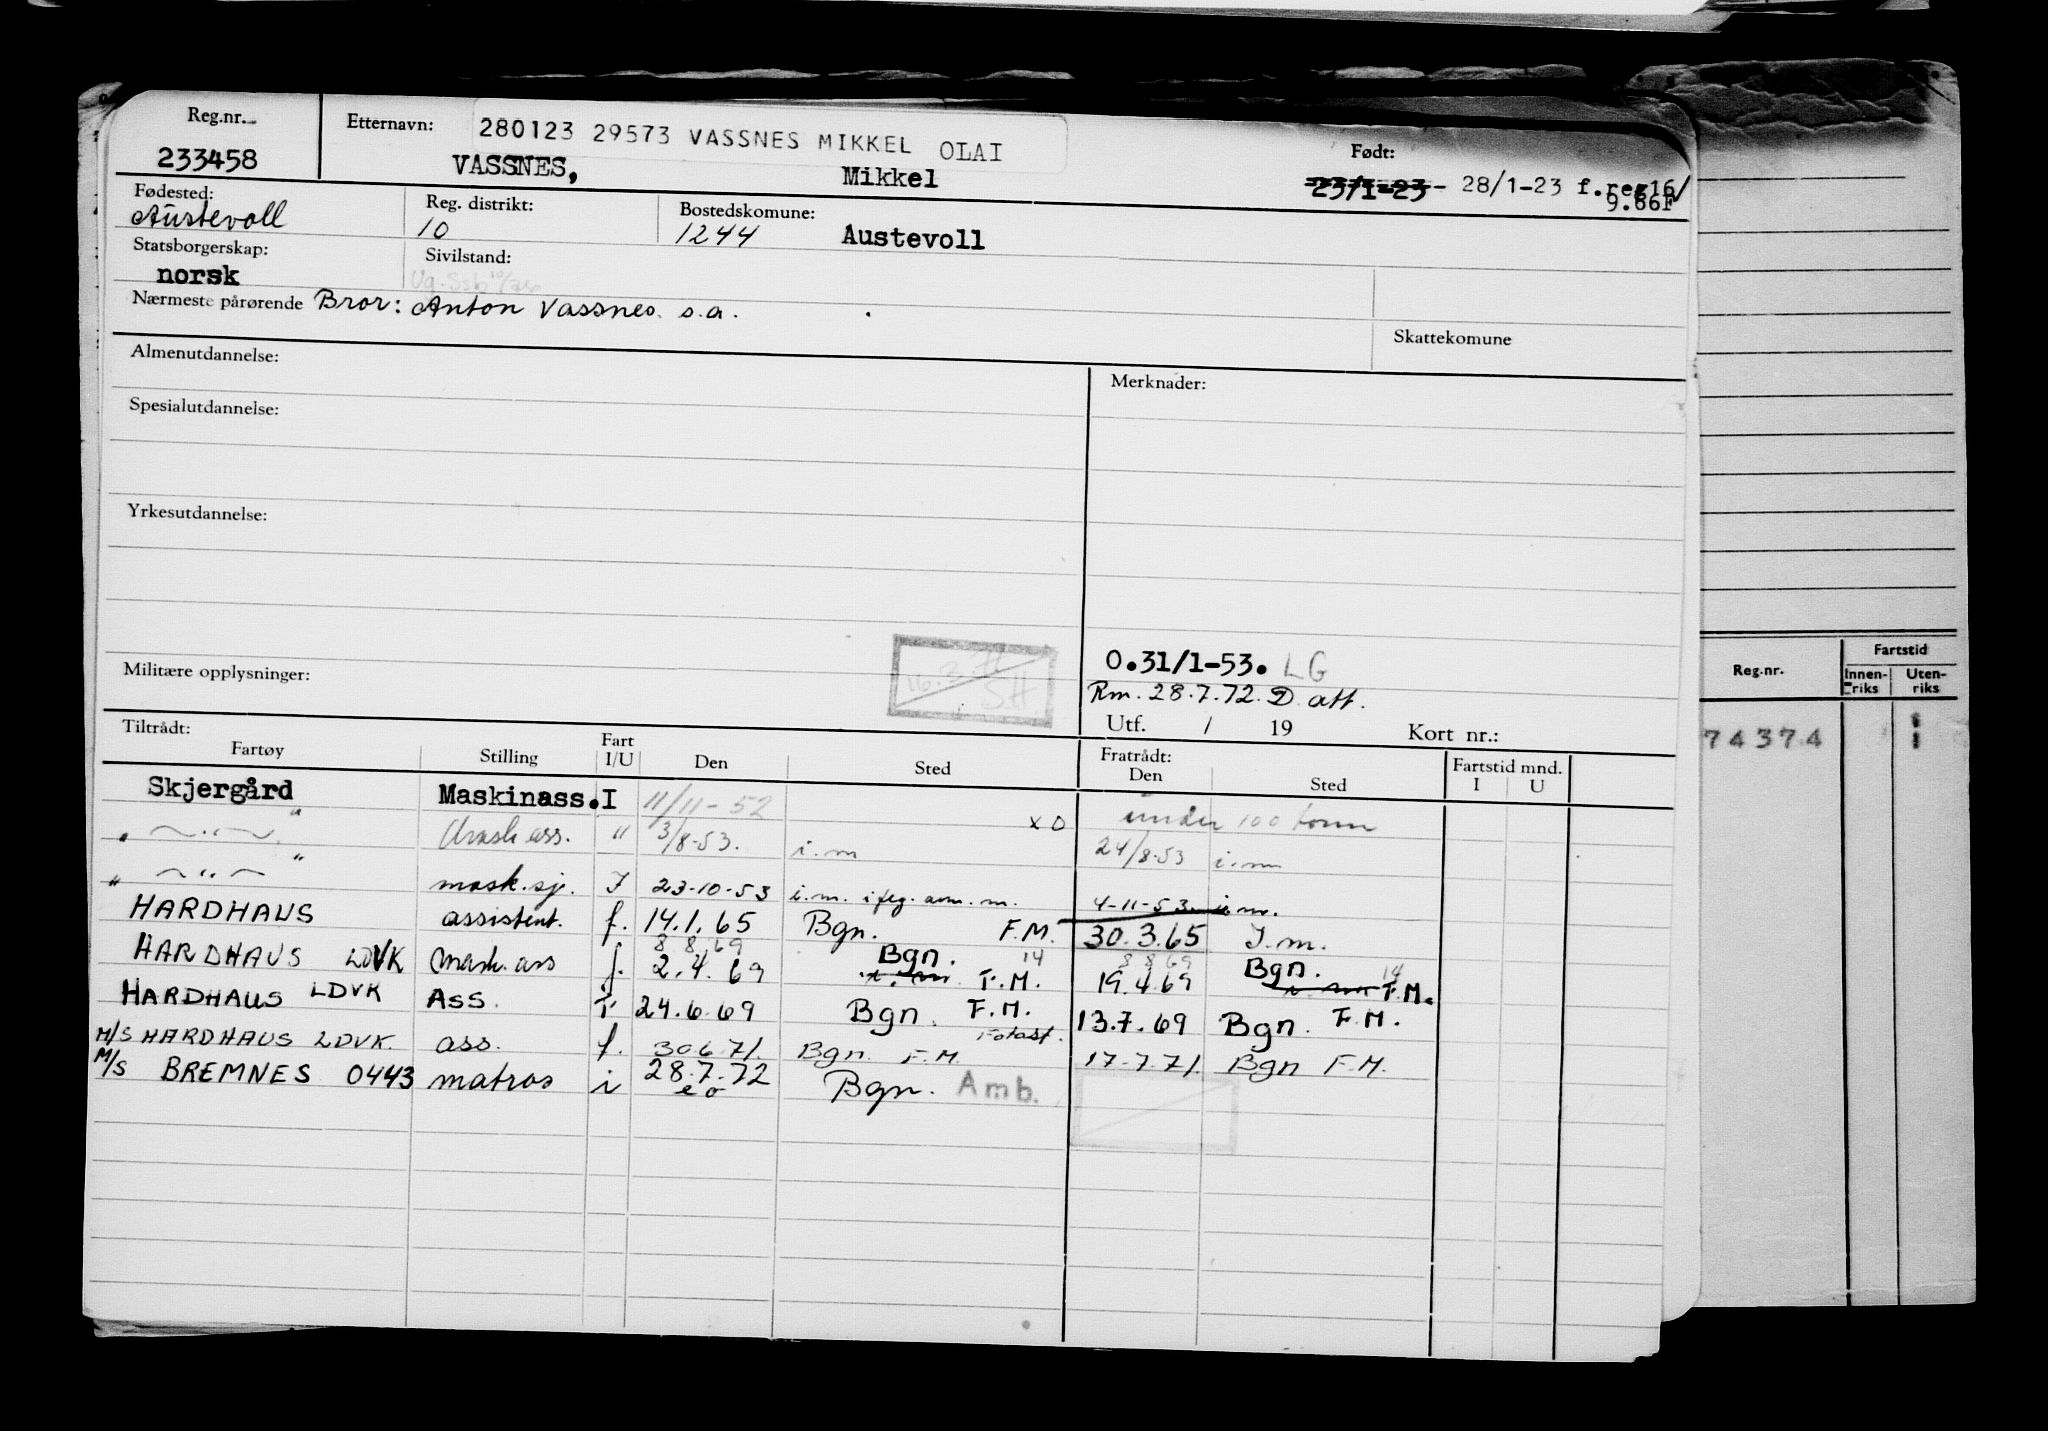 Reg.nr. Etternavn: 280123 29573 VASSNES MIKKEL OLAI Født:
233458 VASSNES, Mikkel 23/1-23 - 28/1-23 f.reg16/
9.66F
Fødested: Reg. distrikt: Bostedskomune:
Austevoll 10 1244 Austevoll
Statsborgerskap: Sivilstand:
norsk Ug.
Nærmeste pårørende Bror: Anton Vassnes s.a.
Skattekomune
Almenutdannelse: Merknader:
Spesialutdannelse:
Yrkesutdannelse:
Militære opplysninger: O.31/1-53. LG
Rm. 28.7.72. D. att.
Utf. / 19 Kort nr.:
Tiltrådt: Fratrådt:
Fartøy Stilling Fart I/U Den Sted Den Sted Fartstid mnd. I U
Skjergård Maskinass. I 11/11-52 x O under 100 tonn
" Mask ass. " 3/8-53. i.m 24/8-53 i.m
" mask.sj. I 23-10-53 i.m. m. 4-11-53 i.m.
HARDHAUS assistent. f. 14.1.65 Bgn. F.M. 30.3.65 I.m.
8 8 69 14 8 8 69 14
HARDHAUS LDVK Mask. ass f. 2.4.69 Bgn. i. m F.M. 19.4.69 Bgn. F.M.
HARDHAUS LDVK ASS. F 24.6.69 Bgn. F.M. 13.7.69 Bgn. F.M.
M/S HARDHAUS LDVK. ass. f. 30.6.71. Bgn. F.M. 17.7.71. Bgn F.M.
M/S BREMNES 0443 matros i 28.7.72 Bgn. Amb.
e o
Reg.nr. Fartstid
Innen-riks Uten-riks
74374